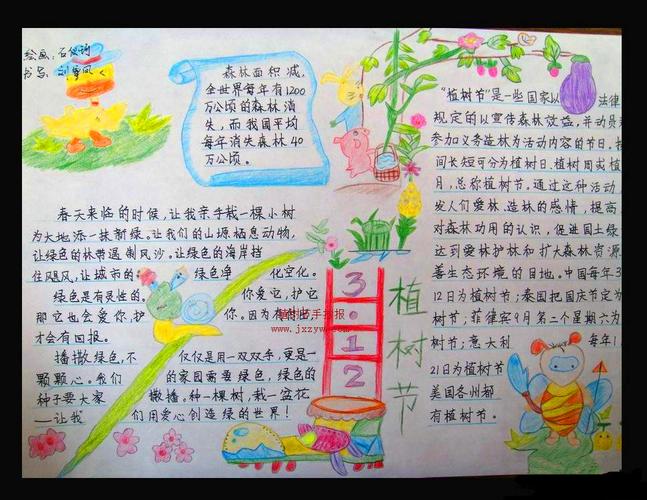 绘画:石
书写:刘
森林面积减,
全世界每年有1200
万公顷的森林消
失,而我国平均
每年消失森林40
万公顷。
春天来临的时候,让我亲手栽一棵小树
为大地添一抹新绿。让我们的山塬栖息动物,
让绿色的林带遏制风沙。让绿色的海岸挡
住飓风,让城市的 绿色净 化空气。
绿色是有灵性的。 你爱它,护它
那它也会爱你,护 你。因为有付出
才会有回报。
播撒绿色,不 仅仅是用一双双手,更是一
颗颗心。我们 的家园需要绿色,绿色的
种子要大家 撒播。种一棵树,栽一盆花
——让我 们用爱心创造绿的世界!
www.jxzyw.com
3.12
植树节
“植树节”是一些国家以 法律
规定的以宣传森林效益,并动员
参加义务造林为活动内容的节日。按
间长短可分为植树日、植树周或植
月,总称植树节。通过这种活动,
发人们爱林、造林的感情,提高
对森林功用的认识,促进国土绿
达到爱林护林和扩大森林资源
善生态环境的目地。中国每年3
12日为植树节;泰国把国庆节定为
树节;菲律宾9月第二个星期六为
树节;意大利 每年1
21日为植树节
美国各州都
有植树节。